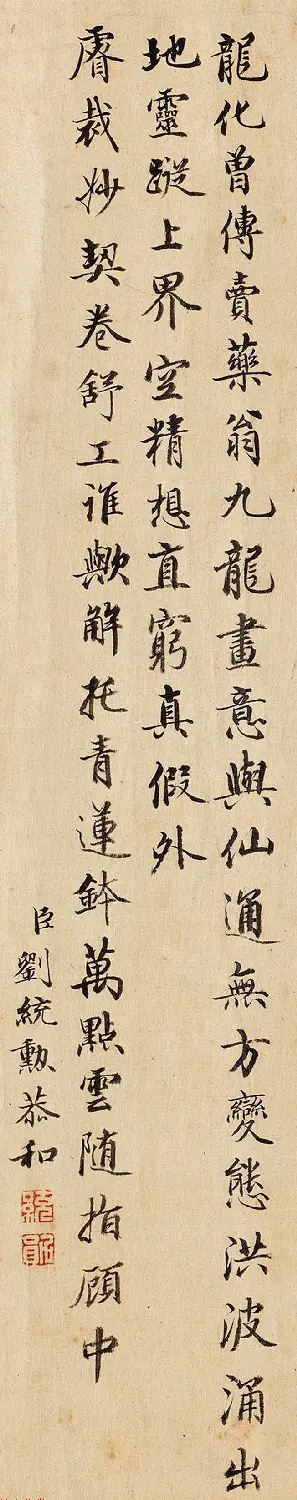 龍化曾傳賣藥翁九龍畫意與仙通無方變態洪波涌出
地靈蹤上界空精想直窮真假外
睿裁妙契卷舒工誰歟解托青蓮鉢萬點雲随指顧中
臣劉統勳恭和